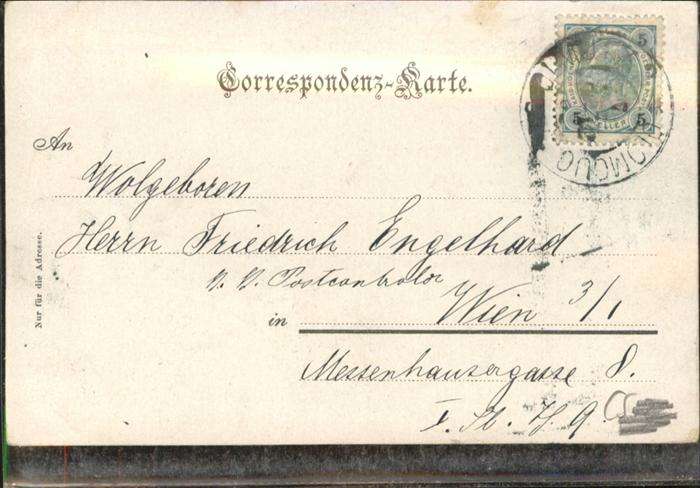 Correspondenz-Karte.
An
Wolgeboren
Herrn Friedrich Engelhard
K. K. Postcontrolor
in Wien 3/1
Messenhausergasse 8.
I. St. T. 9
Nur für die Adresse.
5 5
5 HELLER 5
OLOMOUC